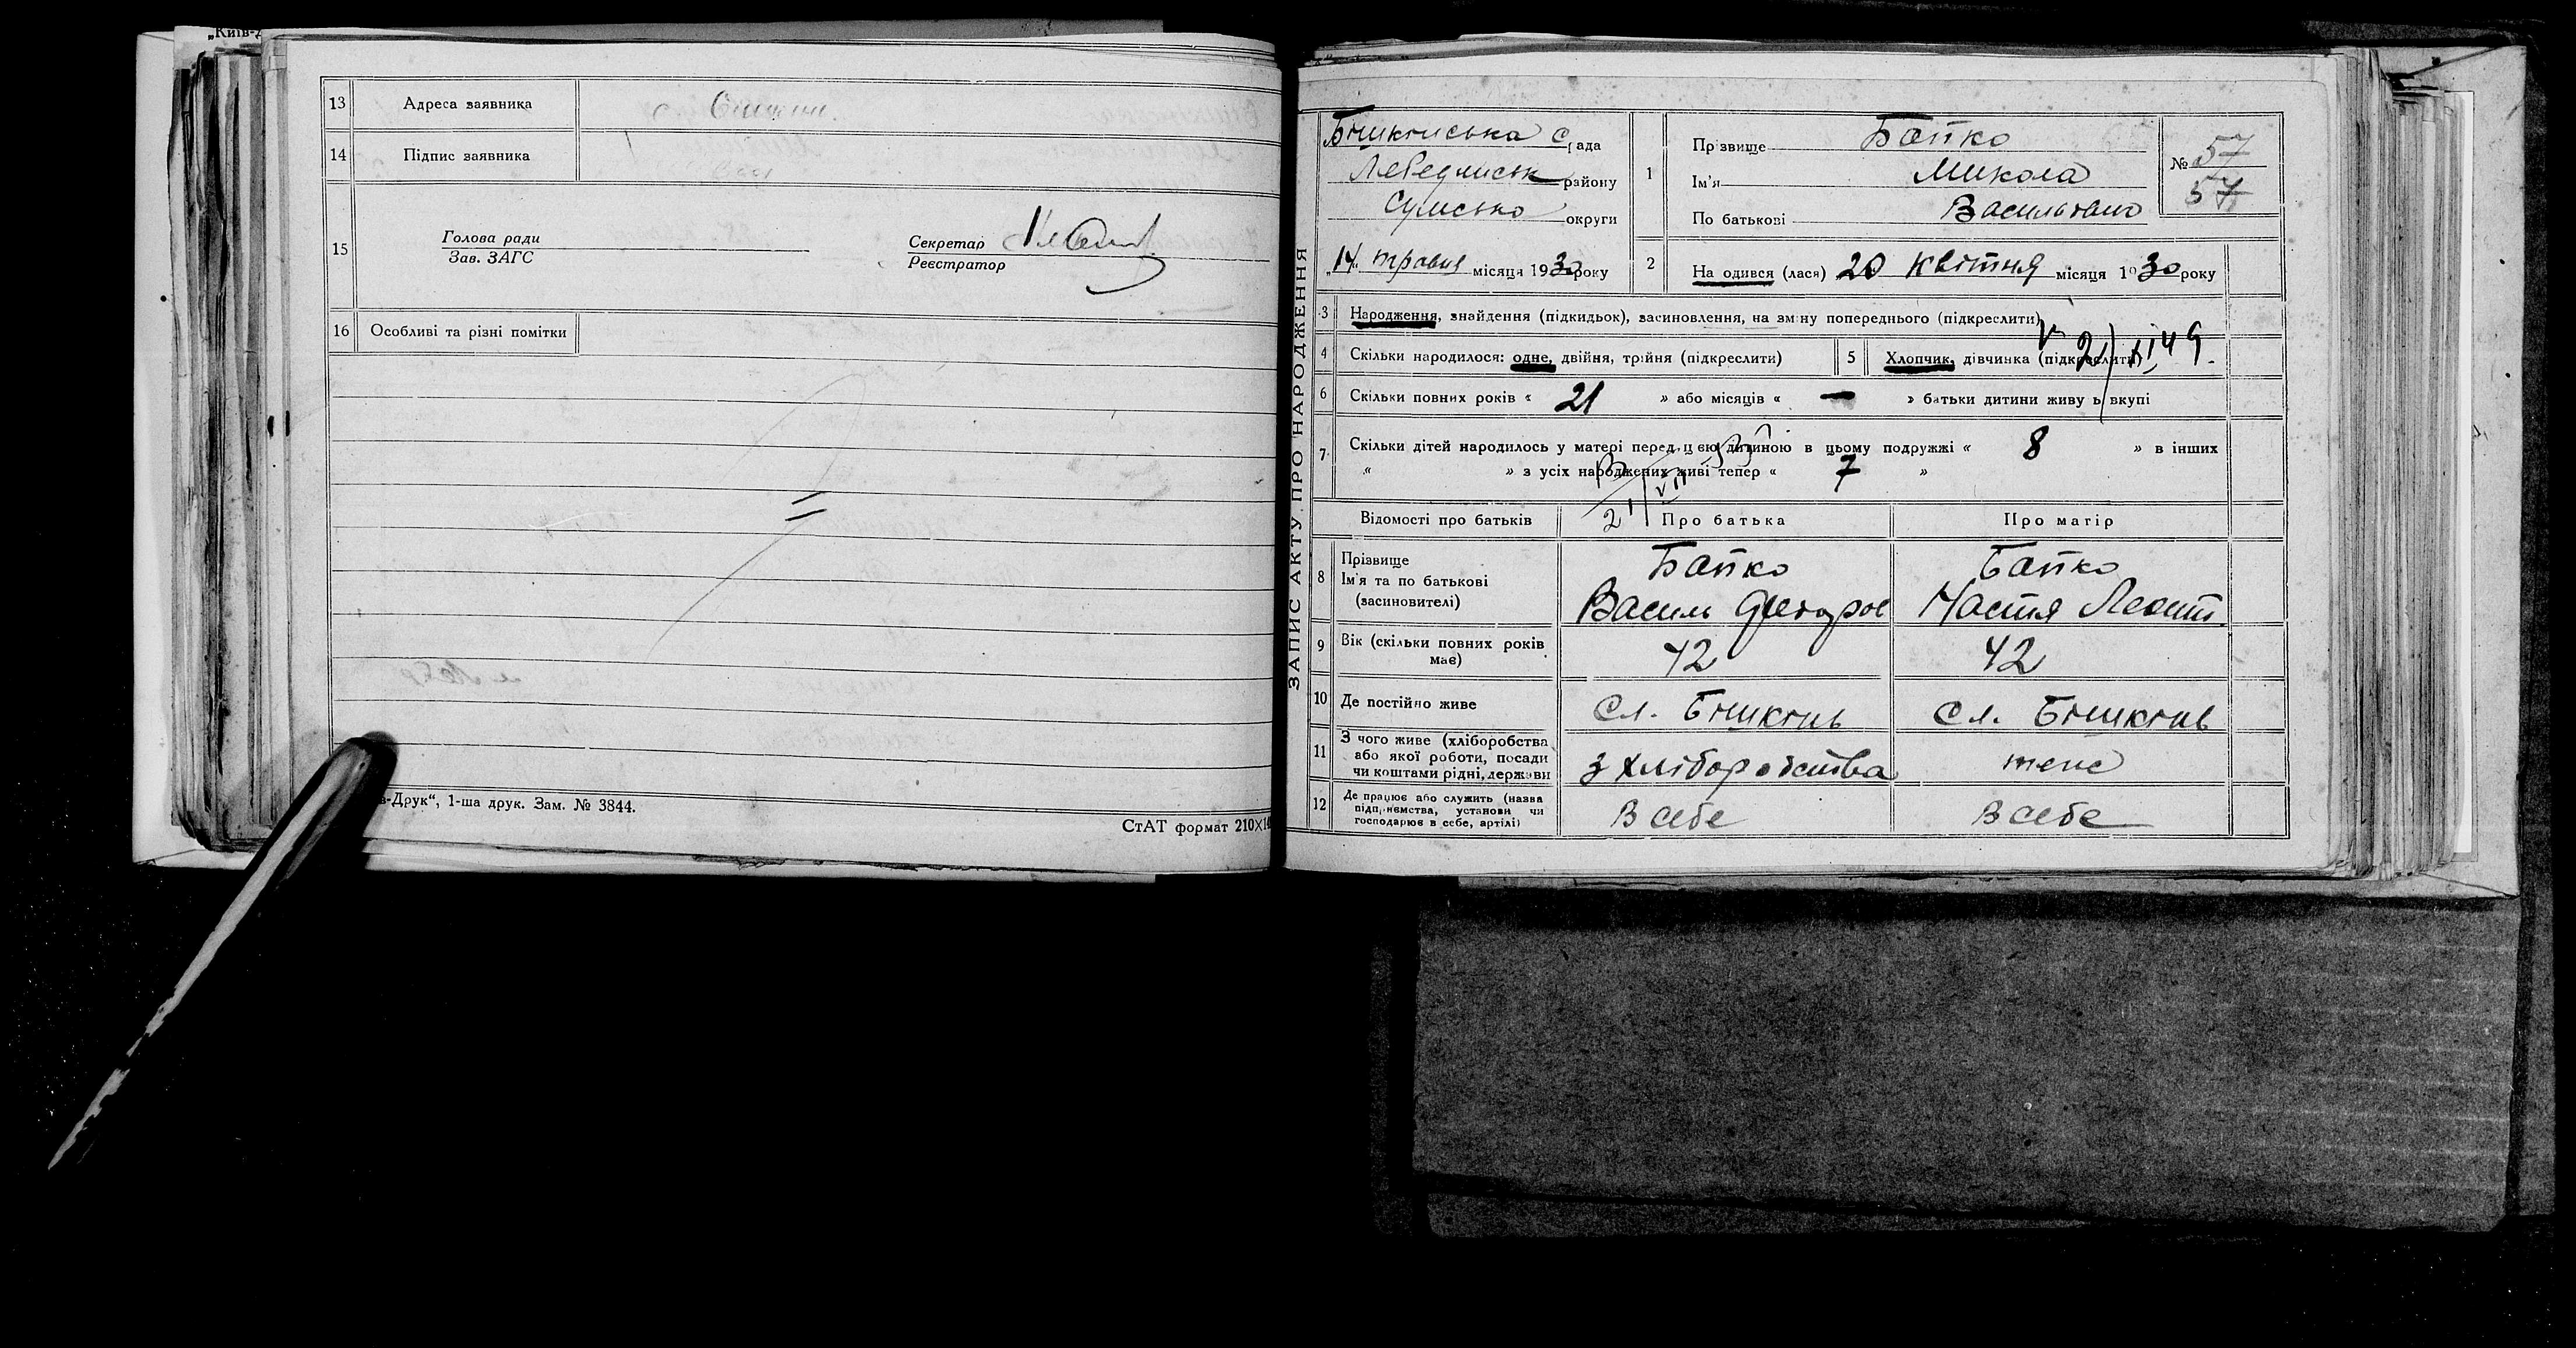 „Київ-Д
13 Адреса заявника
14 Підпис заявника
15 Голова ради
Зав. ЗАГС
Секретар
Реєстратор
16 Особливі та різні помітки
в-Друк“, 1-ша друк. Зам. № 3844.
СтАТ формат 210×14
ЗАПИС АКТУ ПРО НАРОДЖЕННЯ
Бишкинська с рада
Лебединськ району
Сумсько округи
„14“ травня місяця 1930 року
1 Прізвище Бапко
Ім'я Микола
По батькові Васильович
№ 57
57
2 Народився (лася) 20 квітня місяця 1930 року
3 Народження, знайдення (підкидьок), засиновлення, на зміну попереднього (підкреслити)
4 Скільки народилося: одне, двійня, трійня (підкреслити)
5 Хлопчик, дівчинка (підкреслити)
21/XI 49
6 Скільки повних років « 21 » або місяців « — » батьки дитини живуть вкупі
7 Скільки дітей народилось у матері перед цією дитиною в цьому подружжі « 8 » в інших
« » з усіх народжених живі тепер « 7 »
Відомості про батьків Про батька Про матір
8 Прізвище
Ім'я та по батькові
(засиновителі)
Бапко
Василь Федоров
Бапко
Настя Леонт.
9 Вік (скільки повних років має) 42 42
10 Де постійно живе Сл. Бишкинь Сл. Бишкинь
11 З чого живе (хліборобства
або якої роботи, посади
чи коштами рідні, держави
з хліборобства теж
12 Де працює або служить (назва
підприємства, установи чи
господарює в себе, артілі)
В себе В себе